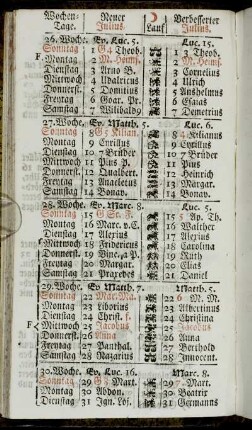 Wochen- Neuer Verbesserter
Tage. Julius. Lauf Julius.
26. Woche. Ev. Luc. 5. Luc. 15.
Sonntag 1 G4 Theod. 1 3 Theod.
F. Montag 2 M. Heims. 2 M. Heims.
Dienstag 3 Arno B. 3 Cornelius
Mittwoch 4 Ulricus 4 Ulrich
Donnerst. 5 Domitius 5 Anshelmus
Freytag 6 Goar. Pr. 6 Esaias
Samstag 7 Wilibald 7 Demetrius
27. Woche. Ev. Matth. 5. Luc. 6.
Sonntag 8 G5 Kilian. 8 4 Kilianus
Montag 9 Cyrillus 9 Cyrillus
Dienstag 10 7 Brüder 10 7 Brüder
Mittwoch 11 Pius P. 11 Pius
Donnerst. 12 Gualbert. 12 Heinrich
Freytag 13 Anacletus 13 Margar.
Samstag 14 Bonav. 14 Bonav.
28. Woche. Ev. Marc. 8. Luc. 5.
Sonntag 15 15 5 Ap. Th.
Montag 16 Mar. v. C. 16 Walther
Dienstag 17 Alexius 17 Alexius
Mittwoch 18 Fridericus 18 Carolina
Donnerst. 19 19 Ruth
Freytag 20 Margar. 20 Elias
Samstag 21 Praxedes 21 Daniel
29. Woche. Ev. Matth. 7. Matth. 5.
Sonntag 22 Mar. Ma. 22 6 M. M.
Montag 23 Liborius 23
Dienstag 24 Christ. 24 Christina
F Mittwoch 25 Jacobus 25 Jacobus
Donnerst. 26 Anna 26 Anna
Freytag 27 Panthal. 27 Berthold
Samstag 28 Nazarius 28 Innocent.
30. Woche. Ev. Luc. 16. Marc. 8.
Sonntag 29 Mart. 29 7 Mart.
Montag 30 Abdon. 30 Beatrix
Dienstag 31 Ign. Loj. 31 Germanus